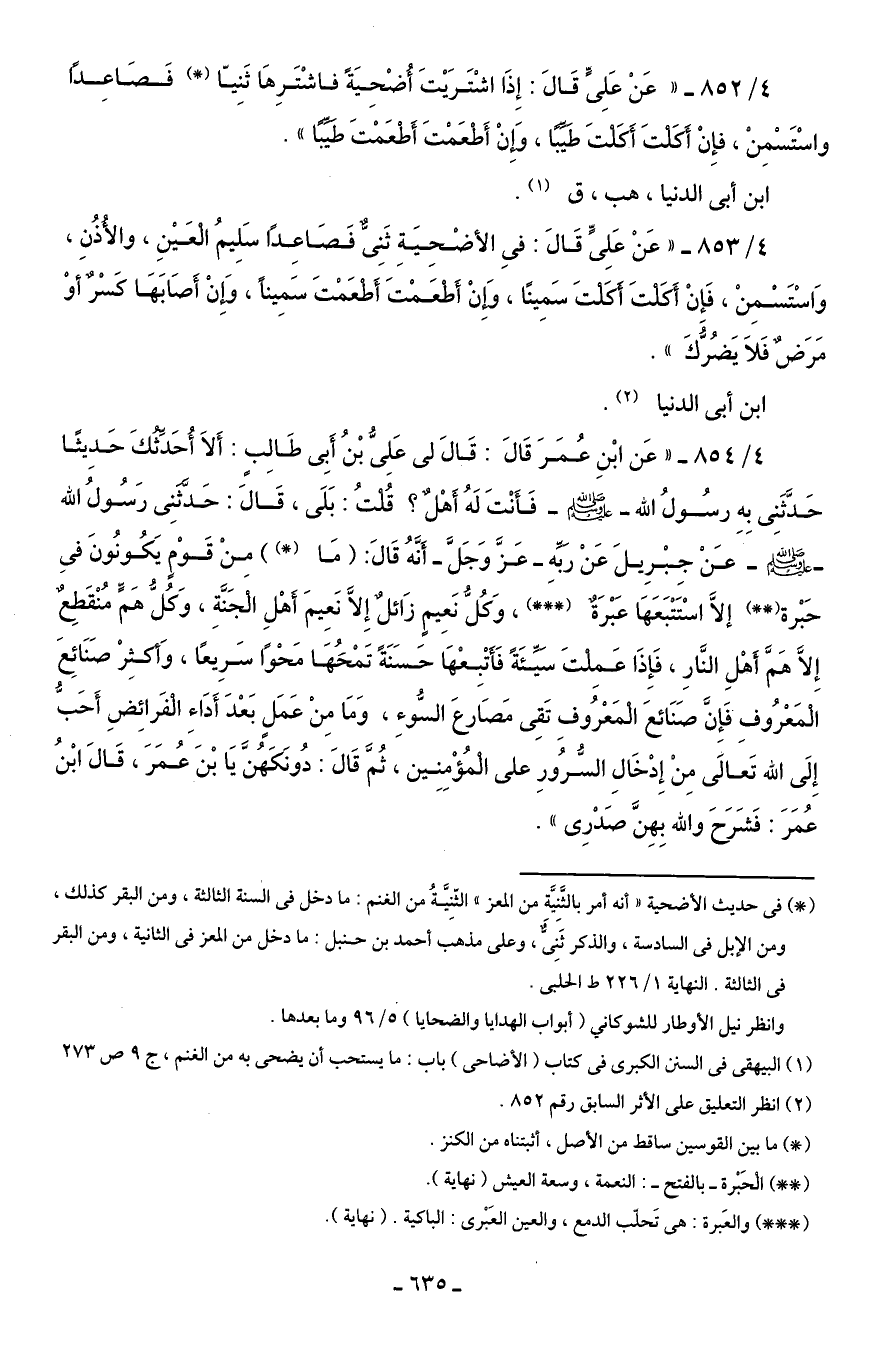 ٤/ ٨٥٢ ـ « عَنْ عَلِىٍّ قَـالَ : إِذَا اشْتَـرَيْتَ أُضْحِيَةً فـاشْتَـرِهَا ثَنِيـّا (*) فَـصَـاعِـدًا
واسْتَسْمِنْ ، فإِنْ أَكَلْتَ أَكَلْتَ طَيِّبًا ، وَإِنْ أَطْعَمْتَ أَطْعَمْتَ طَيِّبًا » .
ابن أبى الدنيا ، هب ، ق (١) .
٤/ ٨٥٣ ـ « عَنْ عَلِىٍّ قَـالَ : فى الأضْـحِيَـةِ ثَنِىٌّ فَـصَـاعِـدًا سَلِيمُ الْعَـيْنِ ، والأُذُنِ ،
وَاسْتَسْـمِنْ ، فَإِنْ أَكَلْتَ أَكَلْتَ سَمِينًا ، وَإِنْ أَطْعَـمْتَ أَطْعَمْتَ سَمِيناً ، وَإِنْ أَصَابَهَـا كَسْرٌ أوْ
مَرَضٌ فَلاَ يَضُرُّكَ » .
ابن أبى الدنيا (٢) .
٤/ ٨٥٤ ـ « عَن ابْنِ عُـمَـرَ قَالَ : قَـالَ لى عَلِىُّ بْنُ أَبِى طَـالِبٍ : أَلاَ أُحَدِّثُكَ حَـدِيثًـا
حَـدَّثَنِى بِهِ رسُـولُ الله ـ ﷺ ـ فَـأَنْتَ لَهُ أَهْلٌ ؟ قُلْتُ : بَلَى ، قَـالَ : حَـدَّثَنِى رَسُـولُ الله
ـ ﷺ ـ عَـنْ جِبْـرِيـلَ عَنْ رَبِّهِ ـ عَـزَّ وَجَلَّ ـ أَنَّهُ قَالَ : ( مَـا (*) ) مِـنْ قَـوْمٍ يَكُونُونَ فِى
حَبْرة (**) إلاَّ اسْتَتْبَعَهَا عَبْرَةٌ (***) ، وَكُلُّ نَعِيمٍ زَائِلٌ إلاَّ نَعِيمَ أَهْلِ الجَنَّةِ ، وَكُلُّ هَمٍّ مُنْقَطِعٌ
إلاَّ هَمَّ أَهْلِ النَّارِ ، فَإذَا عَـمِلْتَ سَيِّئَةً فَأَتْبِـعْهَا حَـسَنَةً تَمْحُهَا مَحْوًا سَرِيعًا ، وَأَكثِرْ صَنَائِعَ
الْمَعْرُوفِ فَإِنَّ صَنَائِعَ الْمَعْرُوفِ تَقِى مَصَارِعَ السُّوءِ ، وَمَا مِنْ عَمَلٍ بَعْدَ أَدَاءِ الْفَرَائِضِ أَحَبُّ
إلَى الله تَعـالَى مِنْ إِدْخَالِ السُّرُورِ على الْمُؤْمِنِـين ، ثُمَّ قَالَ : دُونَكَهُنَّ يَا بْنَ عُـمَرَ ، قَـالَ ابْنُ
عُمَرَ : فَشَرَحَ والله بِهِنَّ صَدْرِى » .
(*) فى حديث الأضحية « أنه أمر بالثَّنِيَّةِ من المعز » الثَّنِيَّةُ من الغنم : ما دخل فى السنة الثالثة ، ومن البقر كذلك ،
ومن الإبل فى السادسة ، والذكر ثَنِىٌّ ، وعلى مذهب أحمد بن حنبل : ما دخل من المعز فى الثانية ، ومن البقر
فى الثالثة . النهاية ١/ ٢٢٦ ط الحلبى .
وانظر نيل الأوطار للشوكاني ( أبواب الهدايا والضحايا ) ٥/ ٩٦ وما بعدها .
(١) البيهقى فى السنن الكبرى فى كتاب ( الأضاحى ) باب : ما يستحب أن يضحى به من الغنم ، ج ٩ ص ٢٧٣
(٢) انظر التعليق على الأثر السابق رقم ٨٥٢ .
(*) ما بين القوسين ساقط من الأصل ، أثبتناه من الكنز .
(**) الْحَبْرة ـ بالفتح ـ : النعمة ، وسعة العيش ( نهاية ).
(***) والعَبرة : هى تَحلّب الدمع ، والعين العَبْرى : الباكية . ( نهاية ).
ـ ٦٣٥ ـ